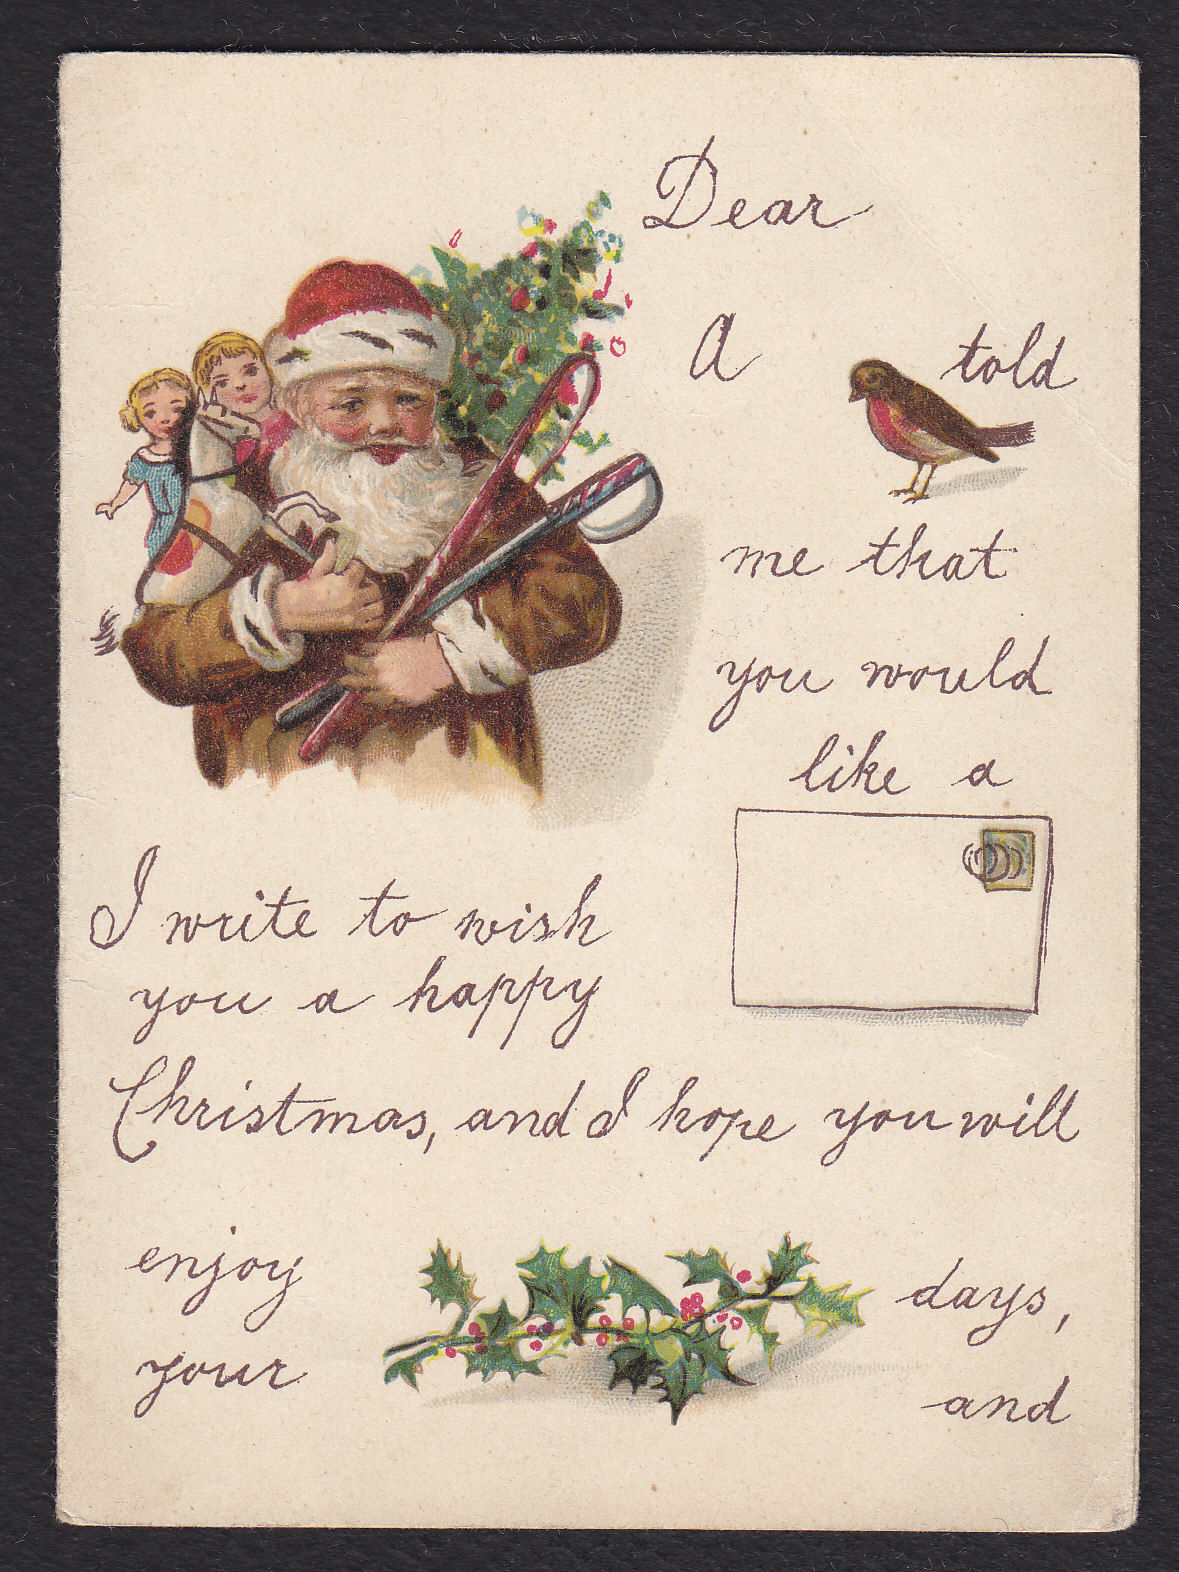 Dear
A told
me that
you would
like a
I write to wish
you a happy
Christmas, and I hope you will
enjoy
your days,
and